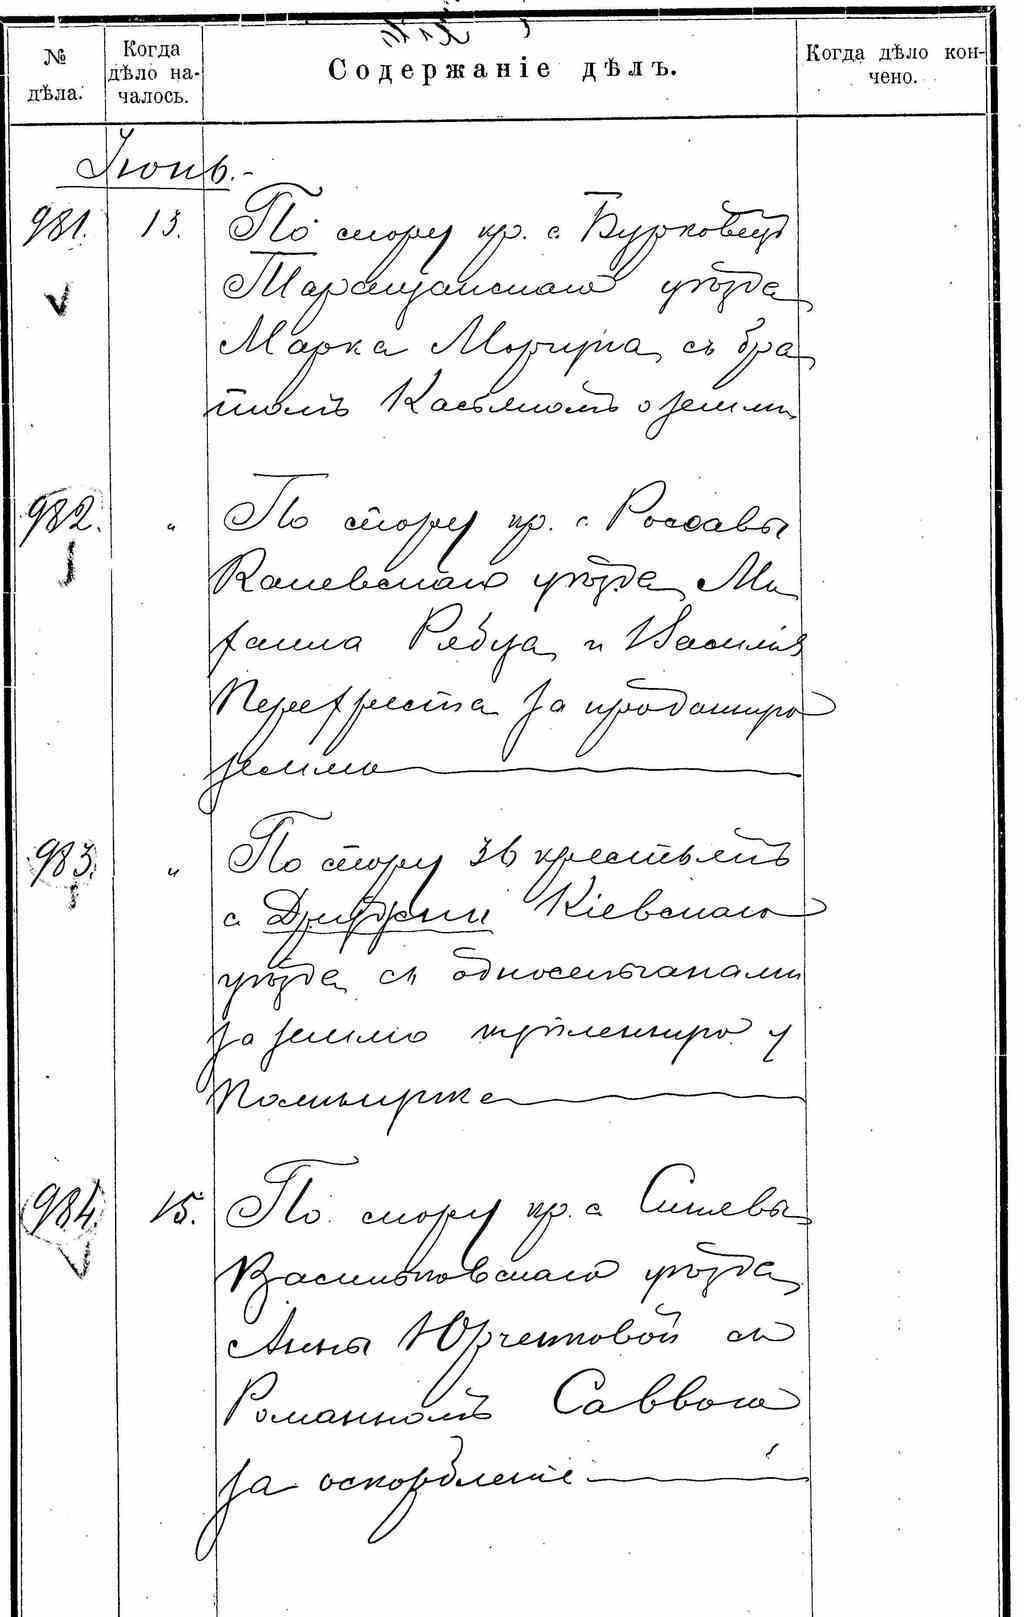 № дѣла.
Когда дѣло на-
чалось.
Содержаніе дѣлъ.
Когда дѣло кон-
чено.
Іюнь.-
981. 13. По спору кр. с. Бурковец
Таращанскаго уѣзда
Марка с бра
томъ Касьяномъ о земли
982. " По спору кр. с. Россавы
Каневскаго уѣзда Ми
хаила Рябца и Василія
Перехреста за проданную
землю
983. " По спору 36 крестьянъ
с Кіевскаго
уѣзда съ односельчанами
за землю купленную у
984. 15. По спору кр. с Синявы
Васильковскаго уѣзда
Анны Юрченковой съ
Романномъ Саввою
за оскорбленіе